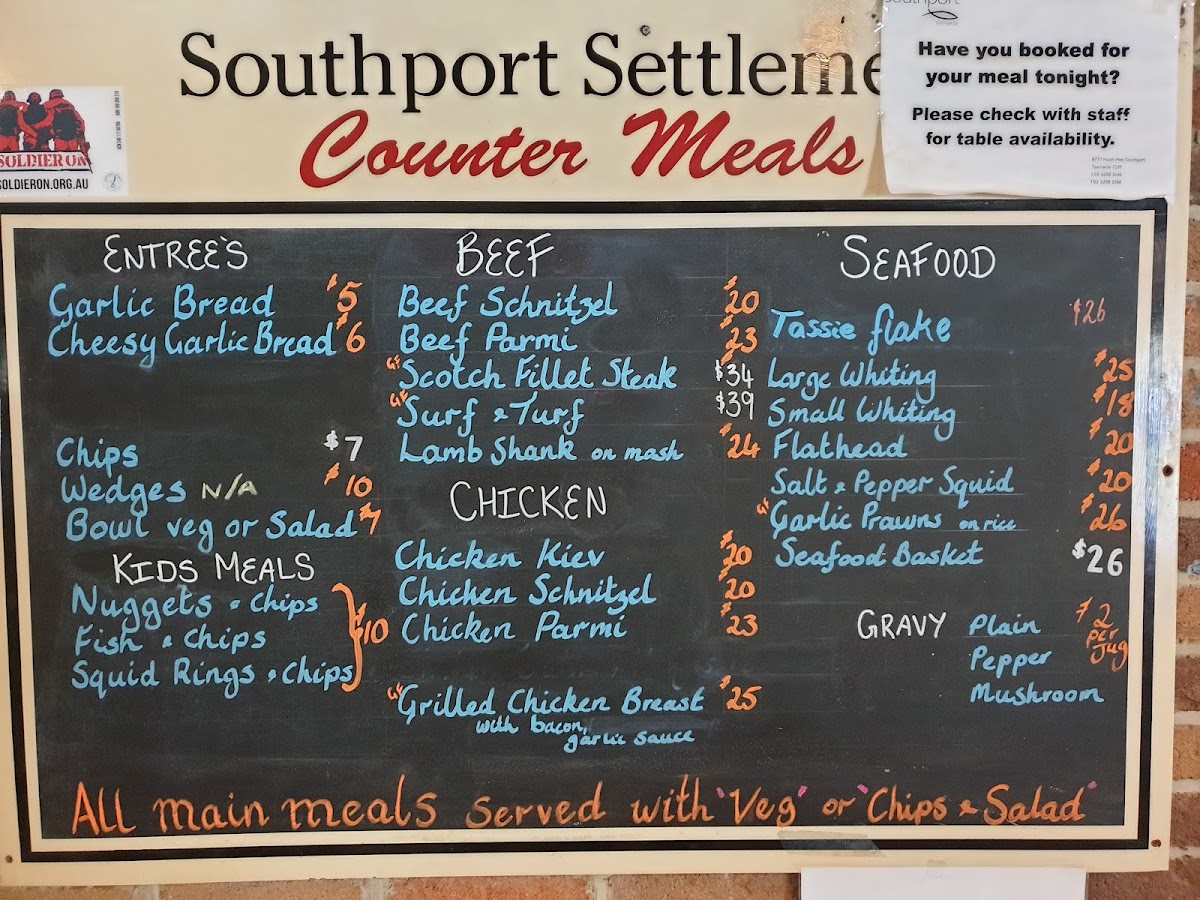 Southport Settleme
Counter Meals
SOLDIER ON
SOLDIERON.ORG.AU
Have you booked for
your meal tonight?
Please check with staff
for table availability.
ENTREE'S
Garlic Bread $5
Cheesy Garlic Bread $6
Chips $7
Wedges N/A $10
Bowl veg or Salad $7
KIDS MEALS
Nuggets & chips
Fish & chips $10
Squid Rings & chips
BEEF
Beef Schnitzel $20
Beef Parmi $23
"G" Scotch Fillet Steak $34
"G" Surf & Turf $39
Lamb Shank on mash $24
CHICKEN
Chicken Kiev $20
Chicken Schnitzel $20
Chicken Parmi $23
"G" Grilled Chicken Breast $25
with bacon,
garlic sauce
SEAFOOD
Tassie flake $26
Large Whiting $25
Small Whiting $18
Flathead $20
Salt & Pepper Squid $20
"G" Garlic Prawns on rice $26
Seafood Basket $26
GRAVY Plain $2
Pepper per
Mushroom Jug
All main meals served with "Veg" or "Chips & Salad"